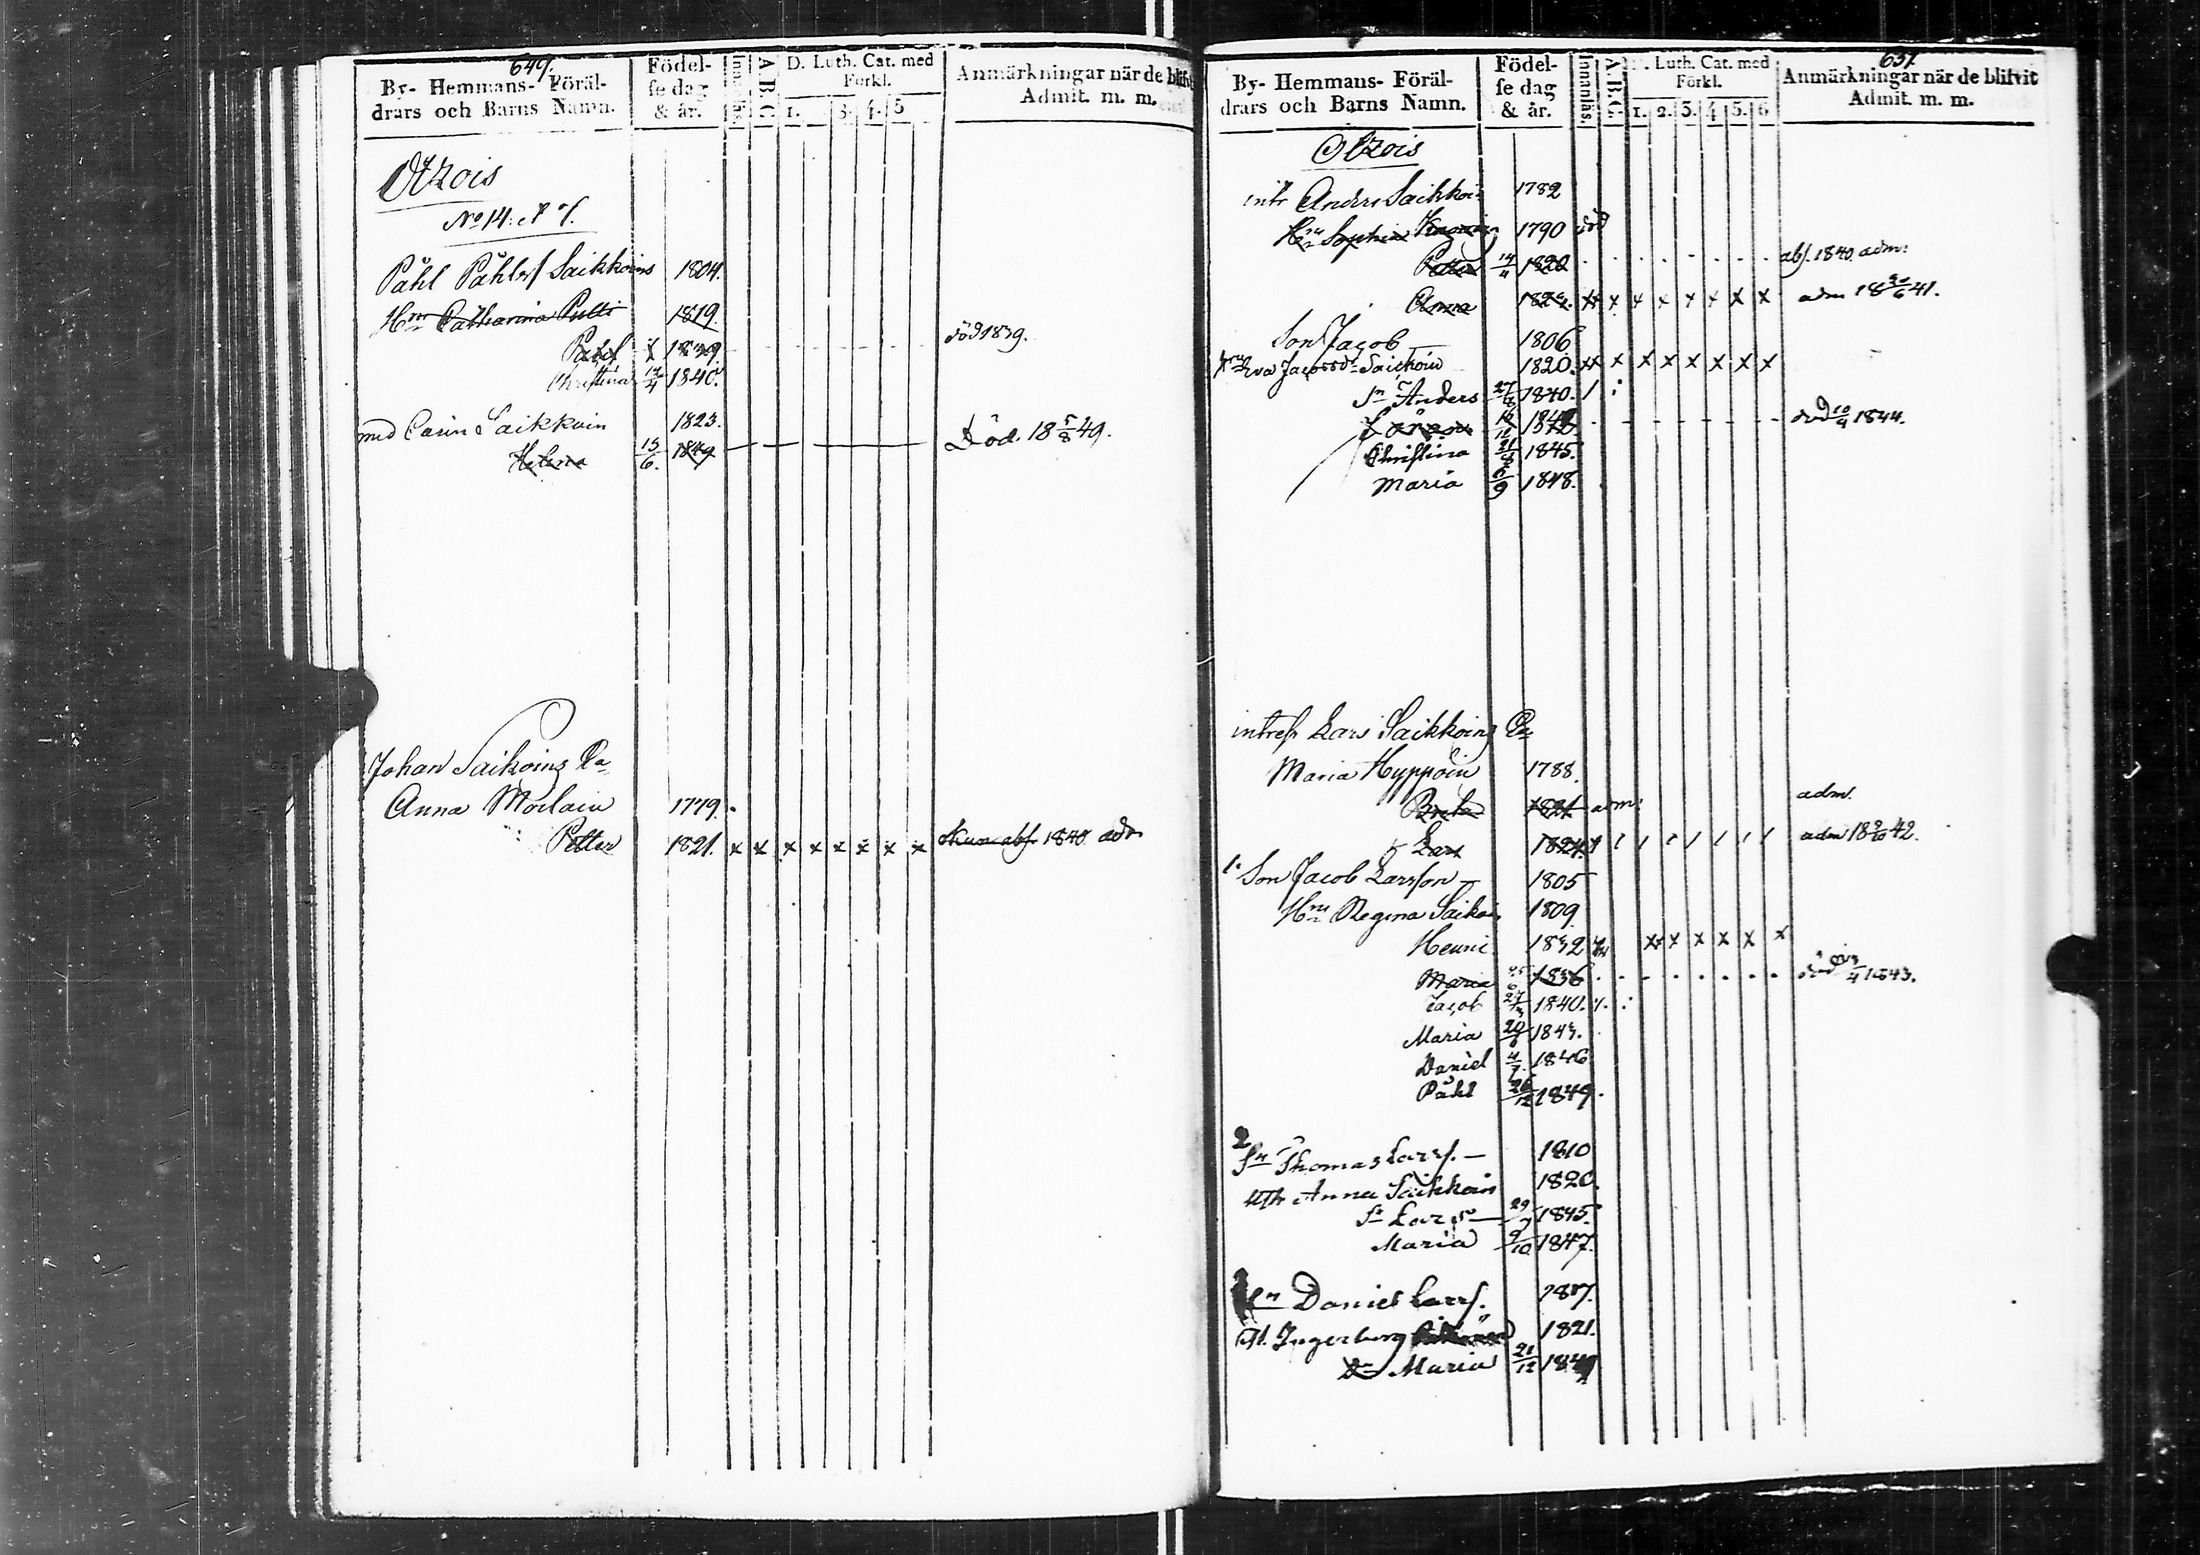 649.
By- Hemmans- Föräl-
drars och Barns Namn.
Födel-
se dag
& år.
Innanläs.
A.B.C.
D. Luth. Cat. med
Förkl.
1. 3. 4. 5
Anmärkningar när de blifvit
Admit. m. m.
Otzois
No 14. &
Påhl Påhlss Saikkoins 1804.
Hru Catharina Putti 1819.
Påhl 1839. död 1839.
Christina 12/4 1840.
med Carin Saikkoin 1823.
Helena 15/6. 1849 Död. 18 5/8 49.
Johan Saikoins
Anna Moilain 1779.
Petter 1821. x x x x x x x x abs. 1840 adm
651.
By- Hemmans- Föräl-
drars och Barns Namn.
Födel-
se dag
& år.
Innanläs.
A.B.C.
Luth. Cat. med
Förkl.
1. 2. 3. 4 5. 6
Anmärkningar när de blifvit
Admit. m. m.
Otzois
intr Anders Saikkoin 1782
Hru Sophia 1790 död
Petter 14/4 1820 abs. 1840. adm:
Anna 1824. x x x x x x x x adm 18 30/6 41.
Son Jacob 1806
hru Eva Jacobsdr Saickoin 1820. x x x x x x x x
Sn Anders 27/8 1840. /
1842 död 10/4 1844.
Christina 21/8 1845.
Maria 6/9 1848.
intress Lars Saikkoins
Maria Hyppöin 1788.
Brita 1821 adm: adm.
Lars 1824. / / / / / / / adm 18 9/10 42.
1. Son Jacob Larsson 1805
Hru Regina Saikoi 1809
Henric 1832 x x x x x x
Maria 25/6 1836 död 13/4 1843.
Jacob 27/3 1840.
Maria 20/6 1843.
Daniel 4/7. 1846
Påhl 26/12 1849.
2
Sn Thomas Larss. 1810
Anna Saikkoin 1820.
Sn Lars 29/7 1845.
Maria 9/10 1847.
Sn Daniel Larss. 1817.
Ingerborg 1821.
Dr Maria 21/12 1849